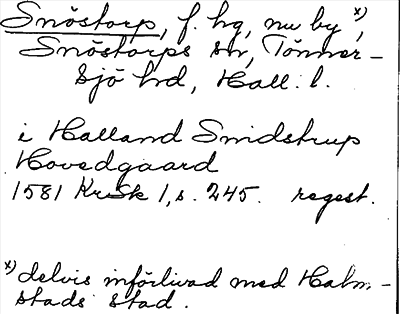 Snöstorp, f. hg, nu by x),
Snöstorps sn, Tönner-
sjö hd, Hall. l.
i Halland Snidstrup
Hovedgaard
1581 KrSk 1, s. 245. regest.
x) delvis införlivad med Halm-
stads stad.